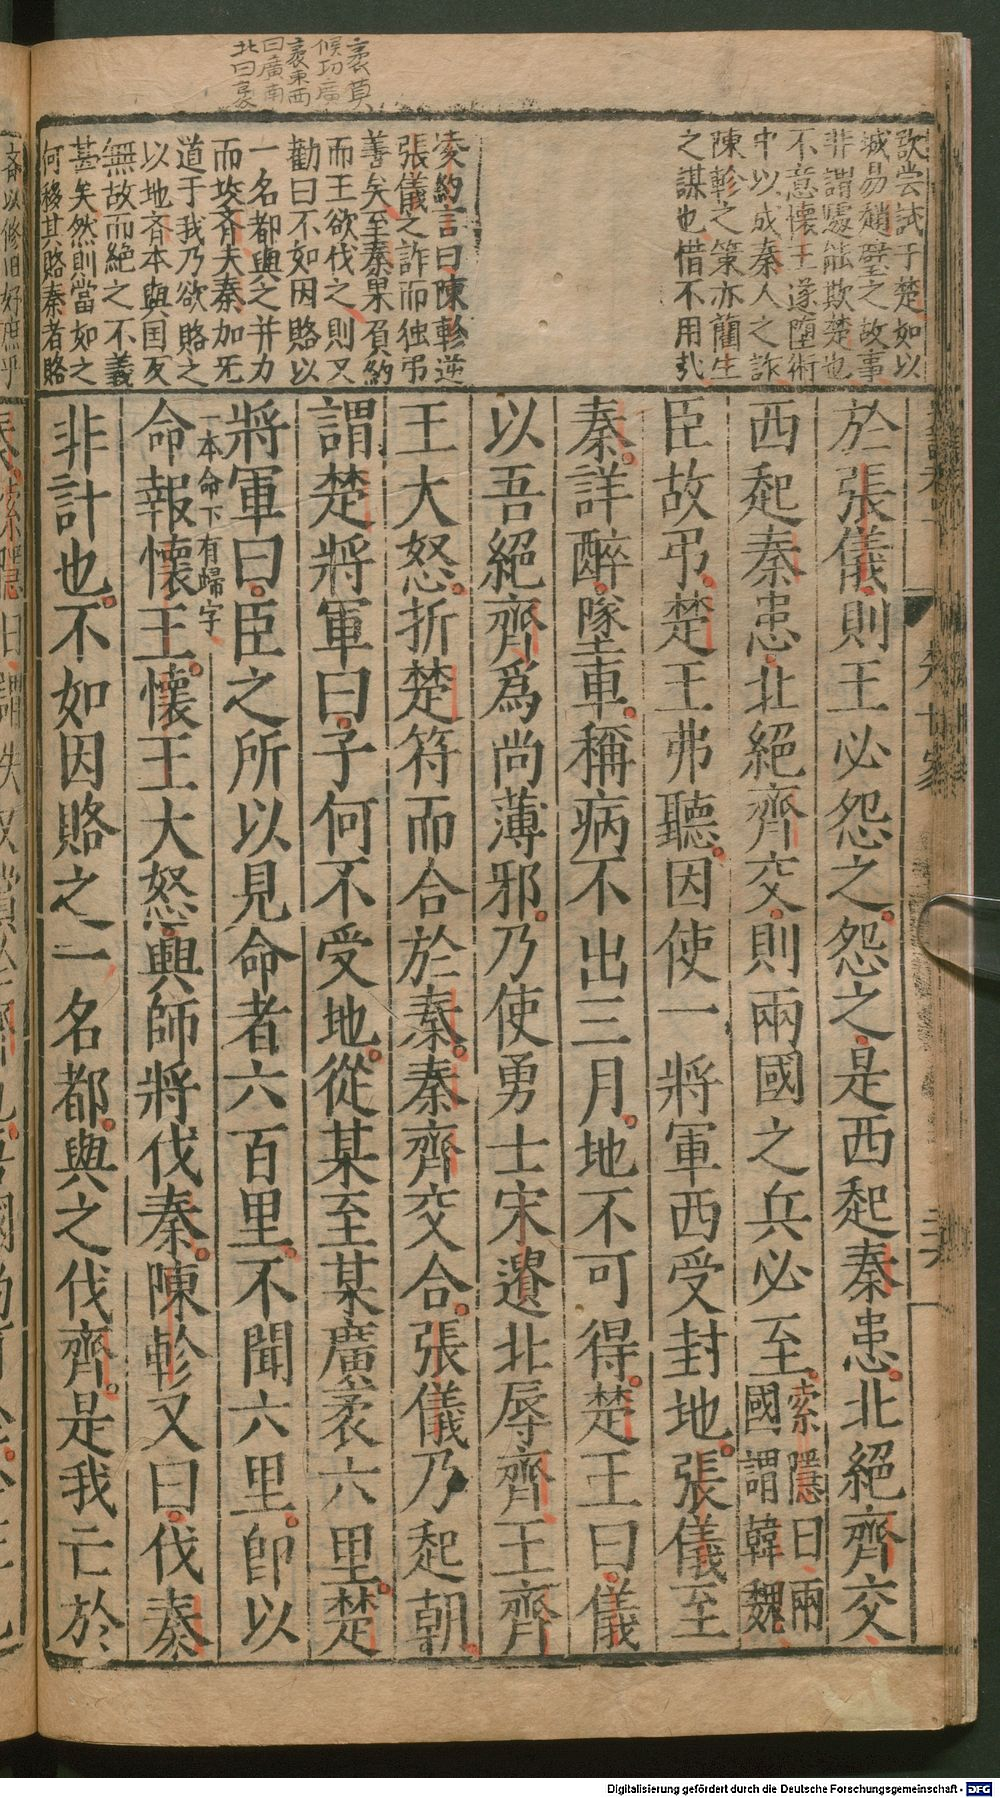 袤莫
候切廣
袤東西
曰廣南
北曰袤
欺尝試于楚如以
城易趙璧之故事
非謂處能欺楚也
不意懷王遂堕術
中以成秦人之詐
陳軫之策亦藺生
之謀也惜不用㢤
凌約言曰陳軫逆
張儀之詐而独弔
善矣至秦果負約
而王欲伐之則又
勸曰不如因賂以
一名都與之并力
而攻斉夫秦加兵
道于我乃欲賂之
以地斉本與国反
無故而絕之不義
甚矣然則當如之
何移其賂秦者賂
於張儀則王必怨之怨之是西起秦患北絕齊交
西起秦患北絕齊交則兩國之兵必至索隱曰兩國謂韓魏
臣故弔楚王弗聽因使一將軍西受封地張儀至
秦詳醉墜車稱病不出三月地不可得楚王曰儀
以吾絕齊爲尚薄邪乃使勇士宋遺北辱齊王齊
王大怒折楚符而合於秦秦齊交合張儀乃起朝
謂楚將軍曰子何不受地從某至某廣袤六里楚
將軍曰臣之所以見命者六百里不聞六里卽以
一本命下有歸字
命報懷王懷王大怒興師將伐秦陳軫又曰伐秦
非計也不如因賂之一名都與之伐齊是我亡於
楚世家
Digitalisierung gefördert durch die Deutsche Forschungsgemeinschaft - DFG